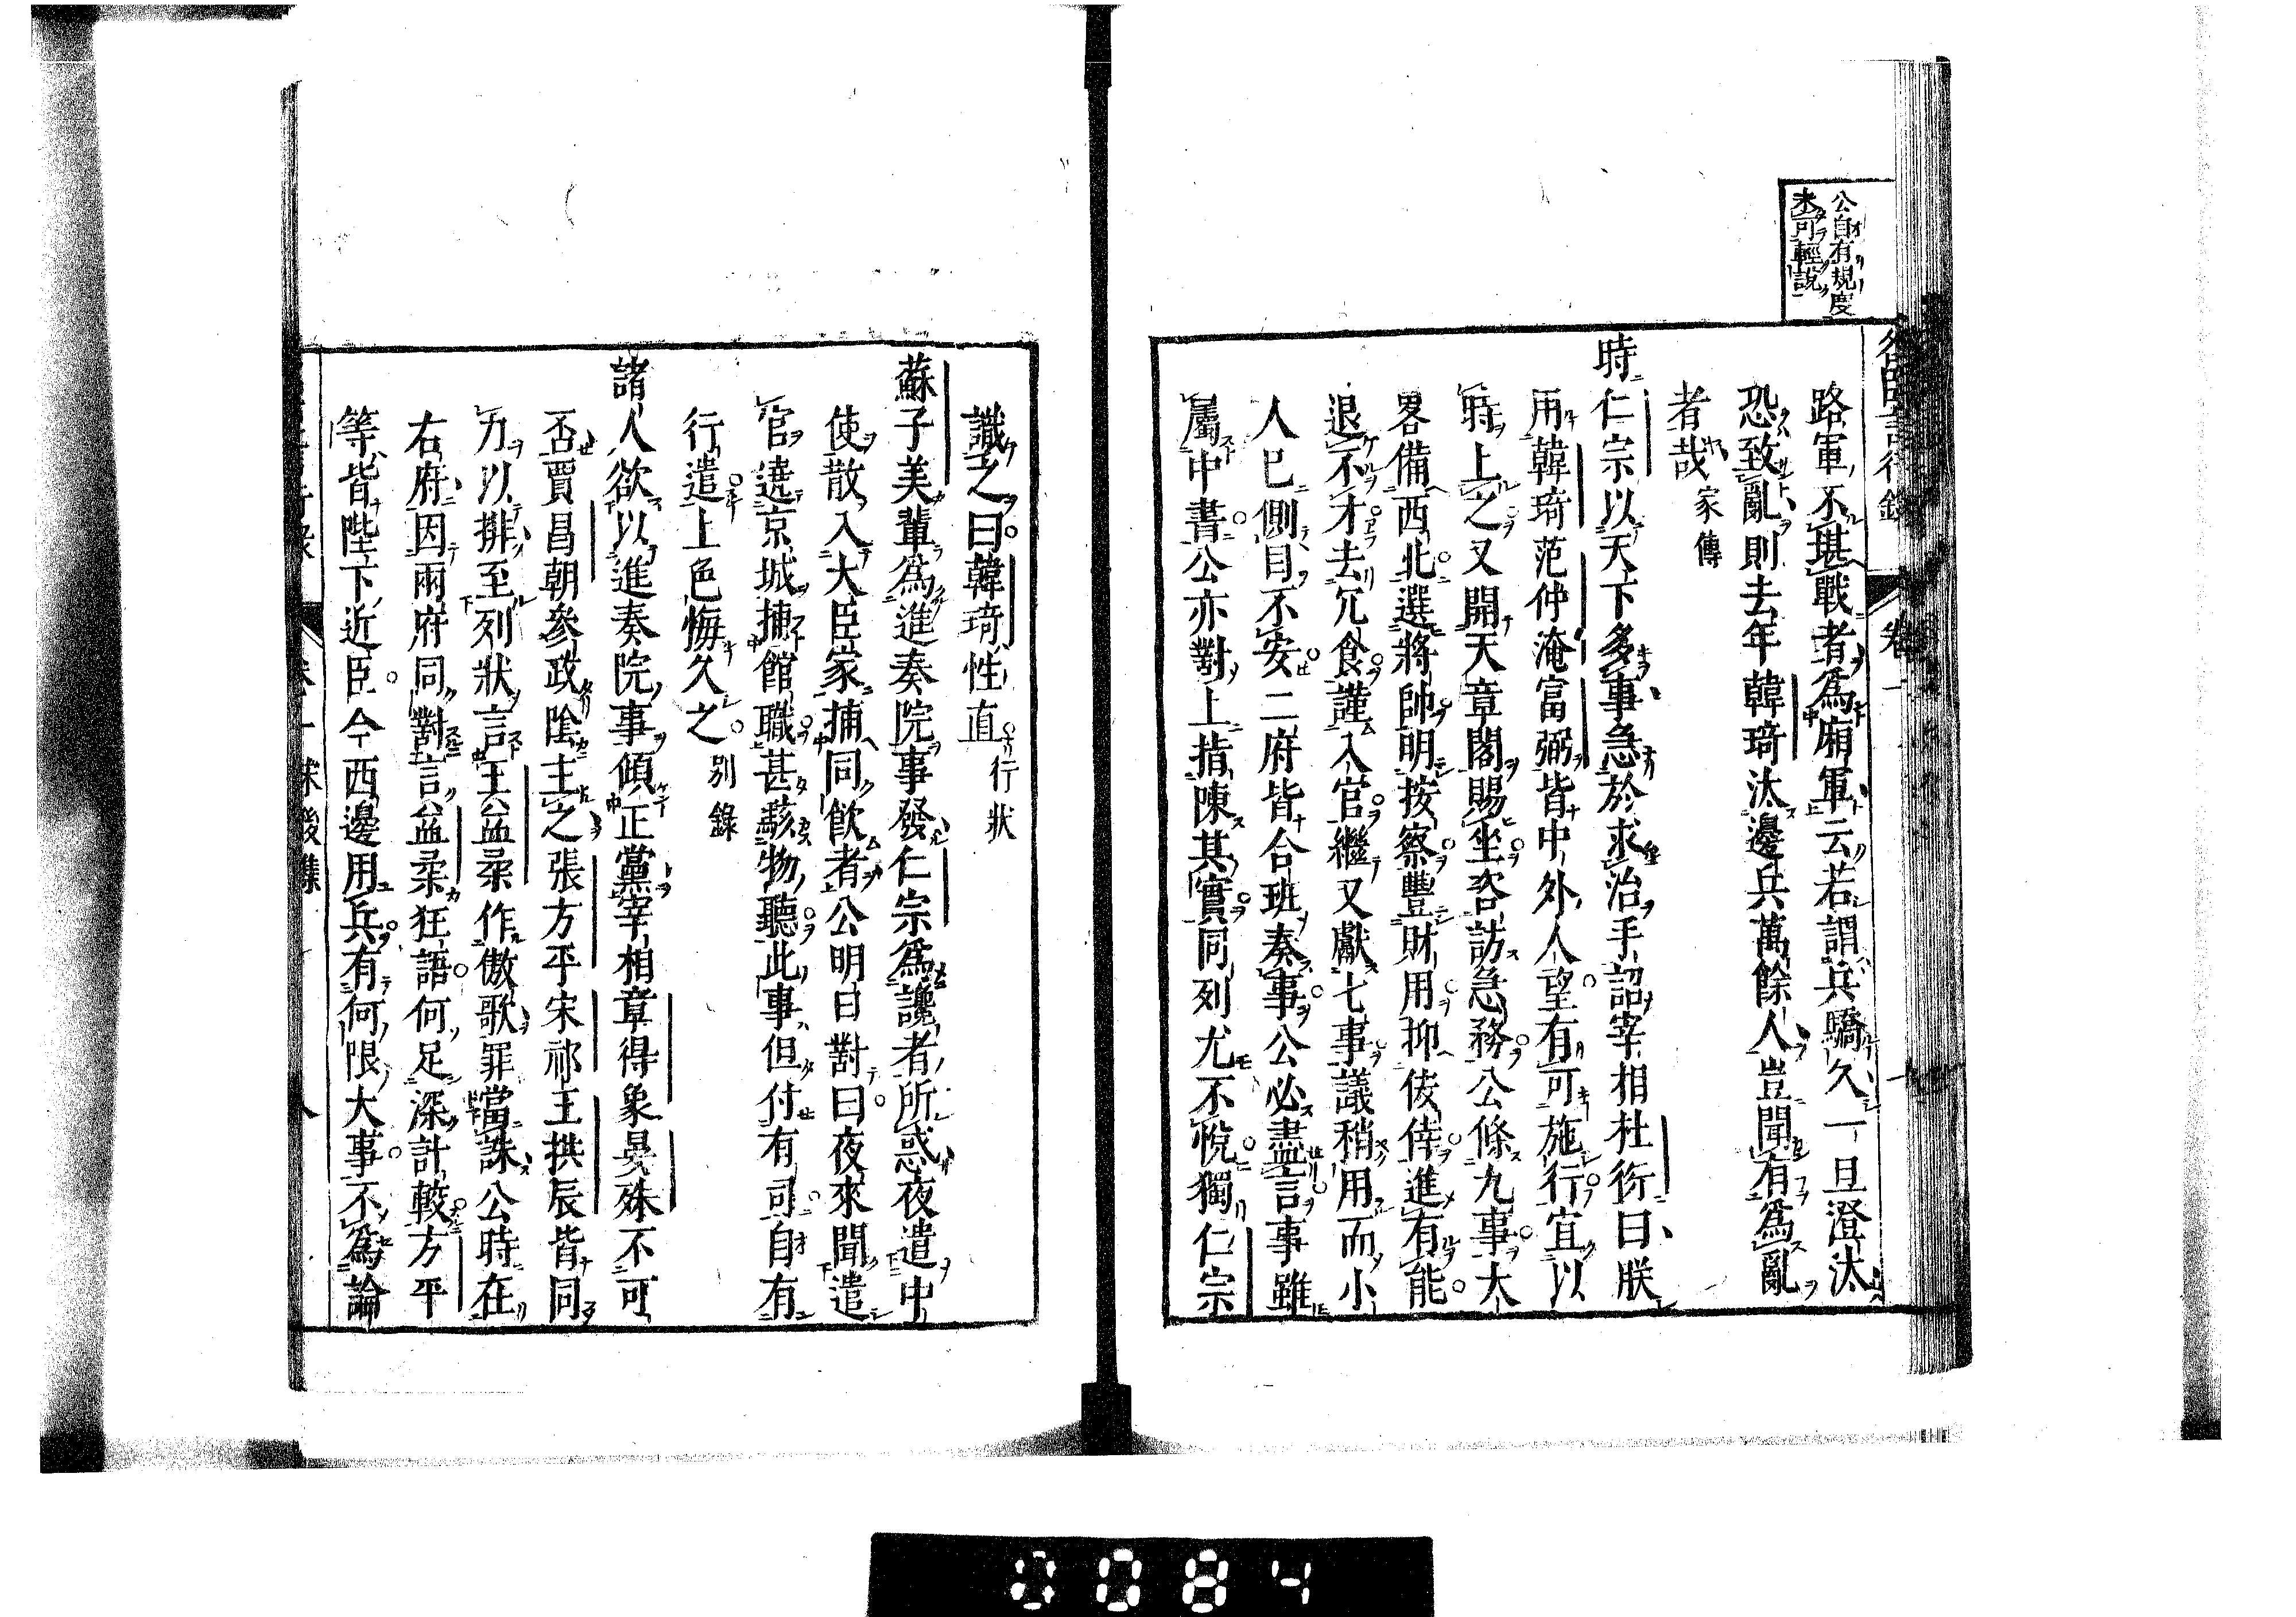 公自有規度
未可輕說
路軍不堪戰者爲廂軍云若謂兵驕久一旦澄汰
恐致亂則去年韓琦汰邊兵萬餘人豈聞有爲亂
者哉 家傳
時仁宗以天下多事急於求治手詔宰相杜衍曰朕
用韓琦范仲淹富弼皆中外人望有可施行宜以
時上之又開天章閣賜坐咨訪急務公條九事大
畧備西北選將帥明按察豐財用抑僥倖進有能
退不才去冗食謹入官繼又獻七事議稍用而小
人已側目不安二府皆合班奏事公必盡言事雖
屬中書公亦對上指陳其實同列尤不悅獨仁宗
識之曰韓琦性直 行狀
蘇子美輩爲進奏院事發仁宗爲讒者所惑夜遣中
使散入大臣家捕同飲者公明日對曰夜來聞遣
官遶京城捕館職甚駭物聽此事但付有司自有
行遣上色悔久之 別錄
諸人欲以進奏院事傾正黨宰相章得象晏殊不可
否賈昌朝參政陰主之張方平宋祁王拱辰皆同
力以排至列狀言王益柔作傲歌罪當誅公時在
右府因兩府同對言益柔狂語何足深計較方平
等皆陛下近臣今西邊用兵有何限大事不爲論
0084